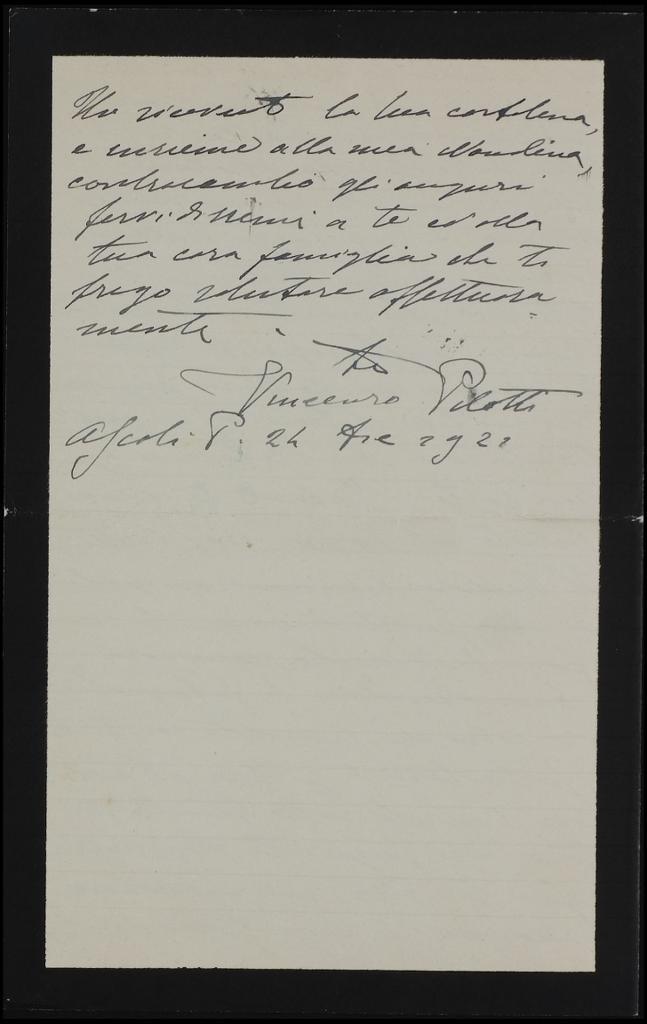 Ho ricevuto la tua cartolina,
e insieme alla mea
contracambio gli auguri
fervidissimi a te ed alla
tua cara famiglia che ti
prego salutare affettuosa
mente.
tuo
Vincenzo Pilotti
Ascoli P. 24 Dre 1921